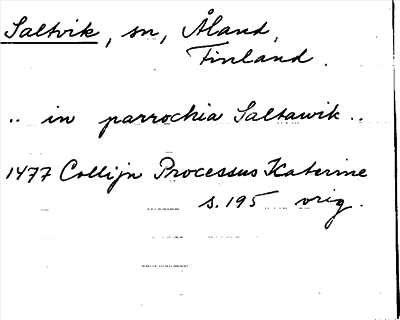 Saltvik, sn, Åland,
Finland.
.. in parrochia Saltawik ..
1477 Collijn Processus Katerine
s. 195 orig.